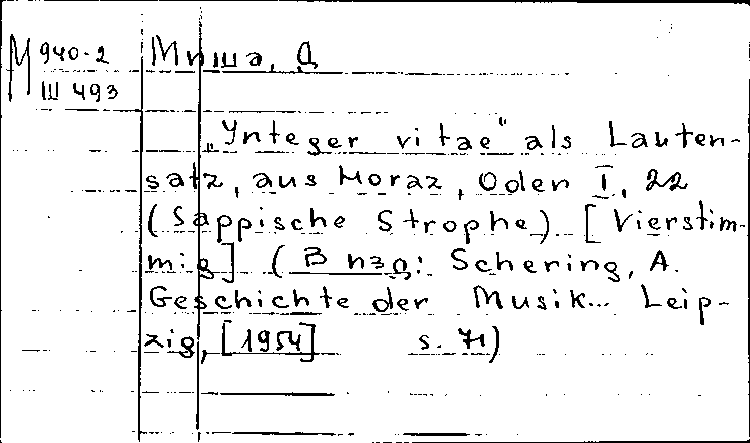 М 940-2 Миша, Д
III 493
„Ynteger vitae" als Lauten-
satz, aus Horaz, Oden I, 22
(Sappische Strophe) [Vierstim-
mig] (В изд: Schering, A.
Geschichte der Musik... Leip-
zig, [1954] s. 71)